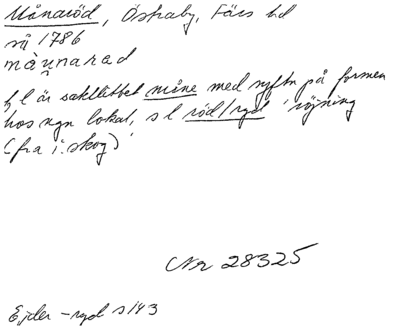 Månaröd, Östraby, Färs hd
så 1786
männarad
f l är sakllettet måne med syftn på formen
hos ngn lokal, s l röd/ryd 'röjning
(fra i. skog)'
Nr 28325
Ejder -ryd s 143